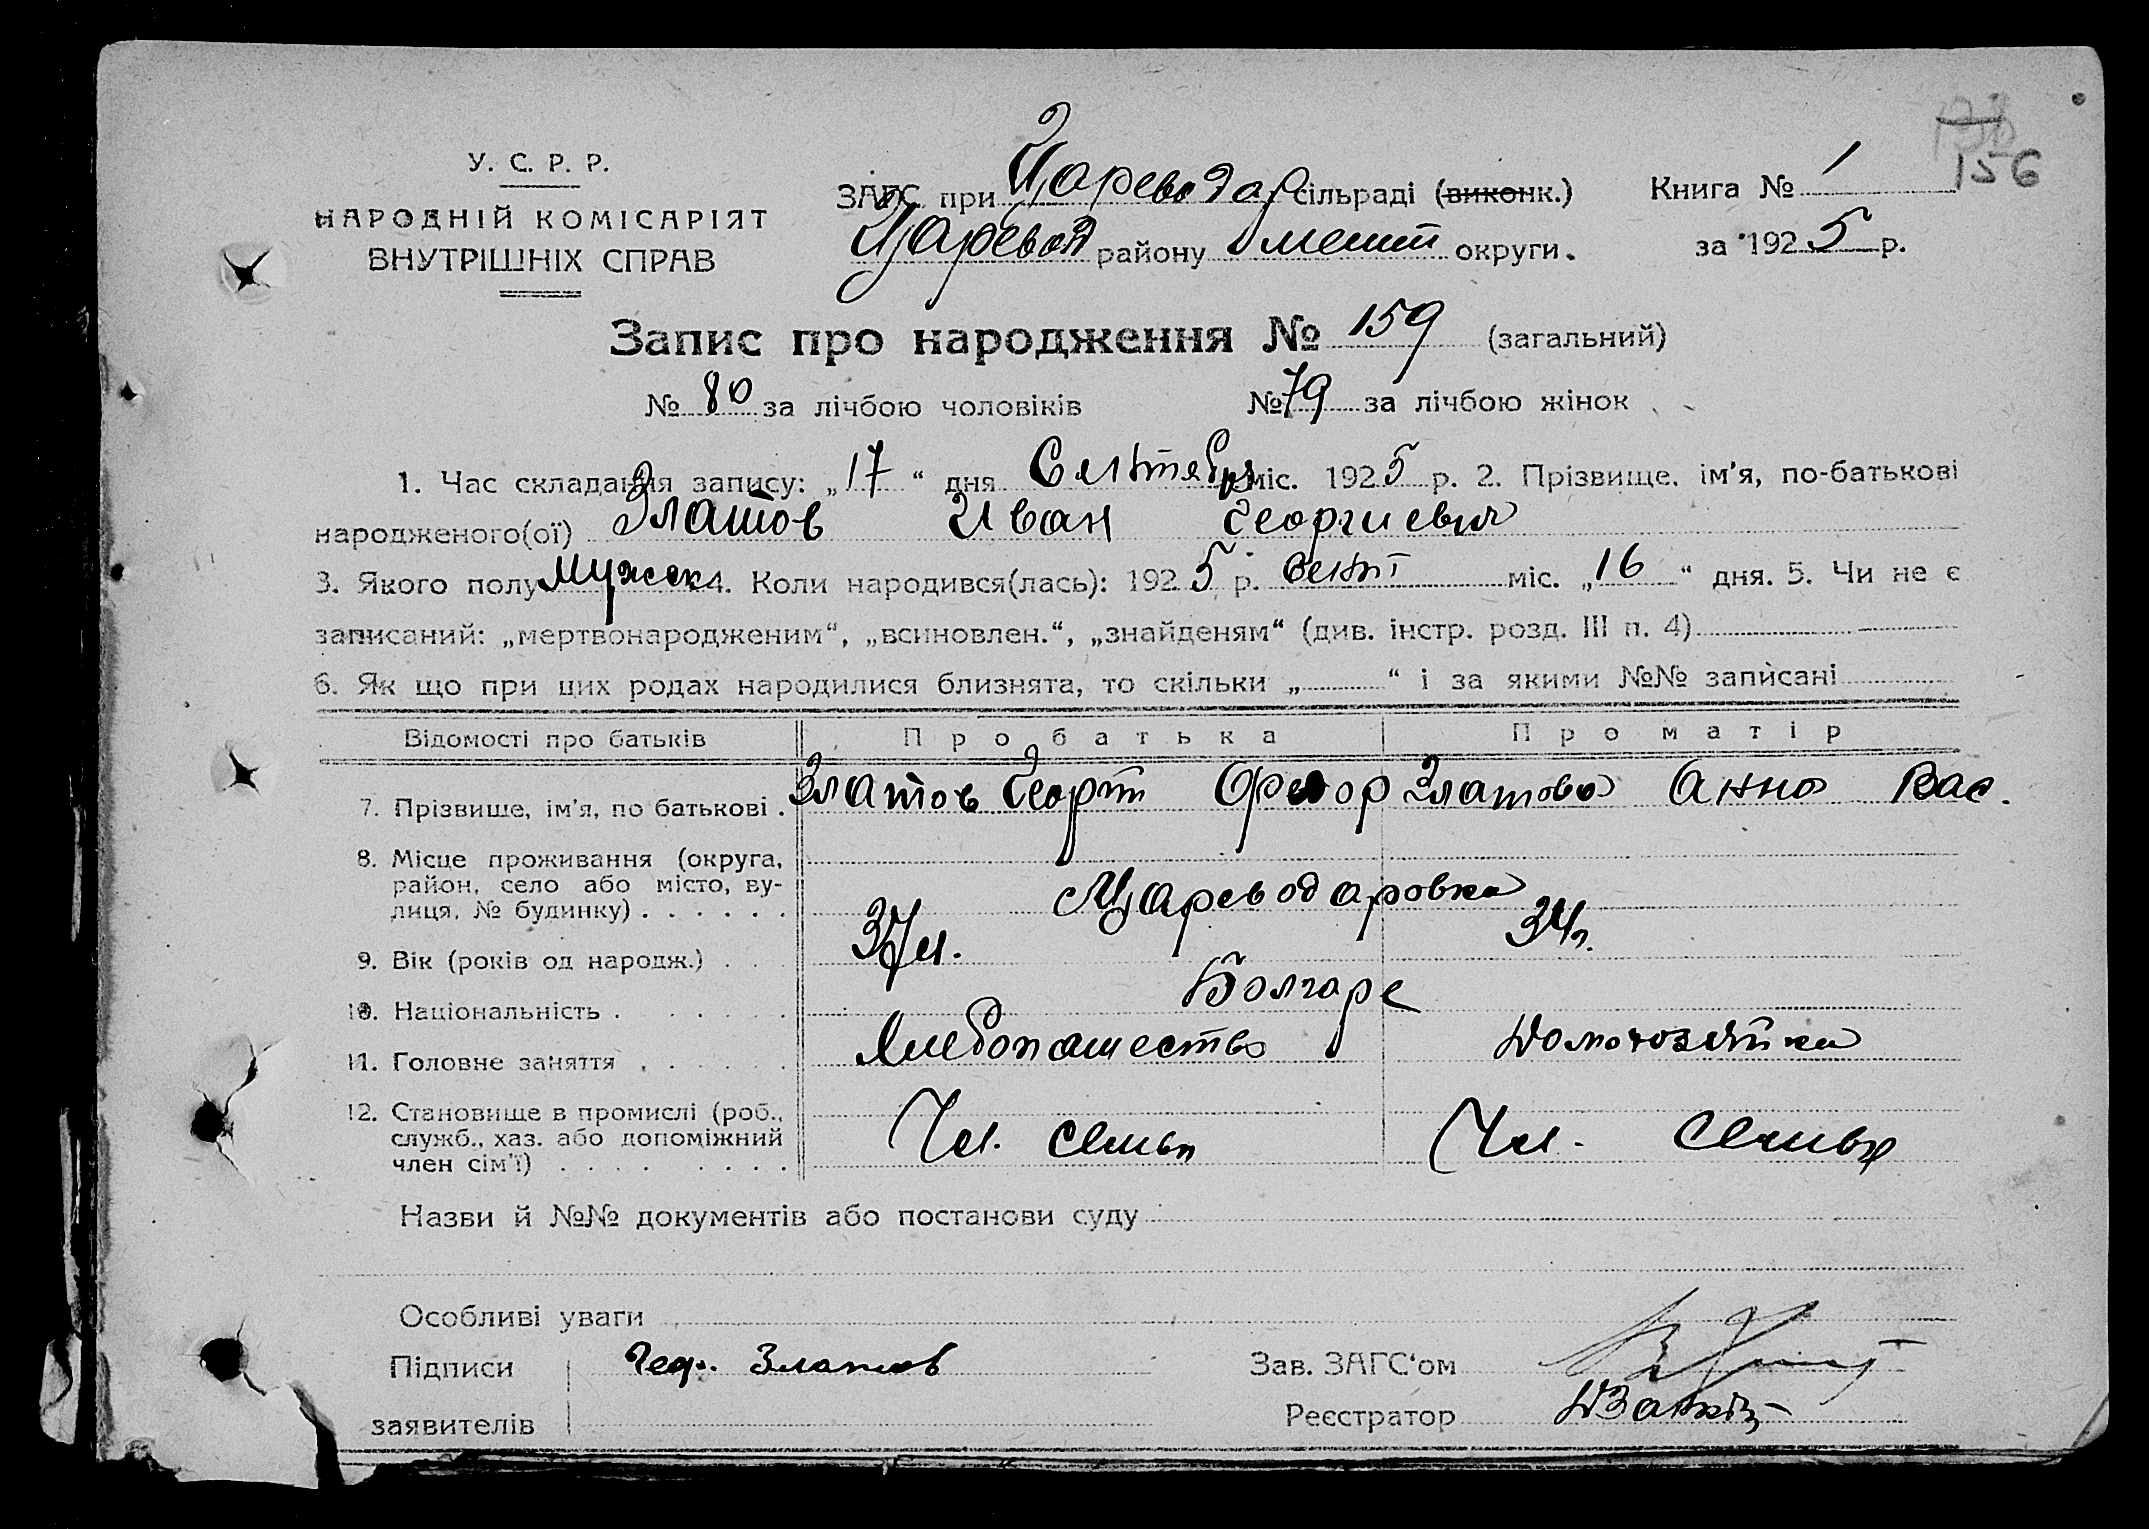 156
У. С. Р. Р.
НАРОДНІЙ КОМІСАРІЯТ
ВНУТРІШНІХ СПРАВ
ЗАГС при Цареводар сільраді (виконк.)
Царевод району округи.
Книга № 1
за 1925 р.
Запис про народження № 159 (загальний)
№ 80 за лічбою чоловіків № 79 за лічбою жінок
1. Час складання запису: „17“ дня Сентября міс. 1925 р. 2. Прізвище, ім'я, по-батькові
народженого(ої) Златов Иван Георгиевич
3. Якого полу Мужск 4. Коли народився(лась): 1925 р. Сент міс. „16“ дня. 5. Чи не є
записаний: „мертвонародженим“, „всиновлен.“, „знайденям“ (див. інстр. розд. III п. 4)
6. Як що при цих родах народилися близнята, то скільки „ “ і за якими №№ записані
Відомості про батьків Про батька Про матір
7. Прізвище, ім'я, по батькові . Златов Георг Федор Златова Анна Вас.
8. Місце проживання (округа,
район, село або місто, ву-
лиця, № будинку) . . . . . . Цареводаровка
9. Вік (років од народж.) . . 37 л. 34 л.
10. Національність . . . . . . Болгаре
11. Головне заняття . . . . . Хлебопашество Домохозяйка
12. Становище в промислі (роб.,
служб., хаз. або допоміжний
член сім'ї) . . . . . . . . Чл. семьи Чл. семьи
Назви й №№ документів або постанови суду
Особливі уваги
Підписи Геор. Златов Зав. ЗАГС'ом
заявителів Реєстратор